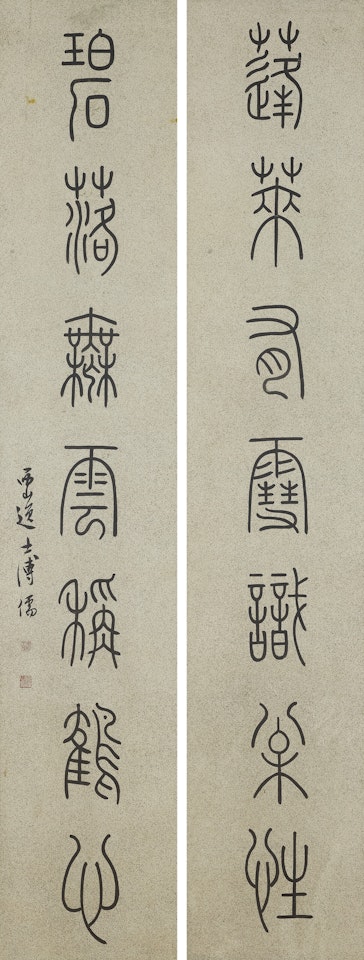 蓬萊有雪識枀性
碧落無雲稱鶴心
西山逸士溥儒